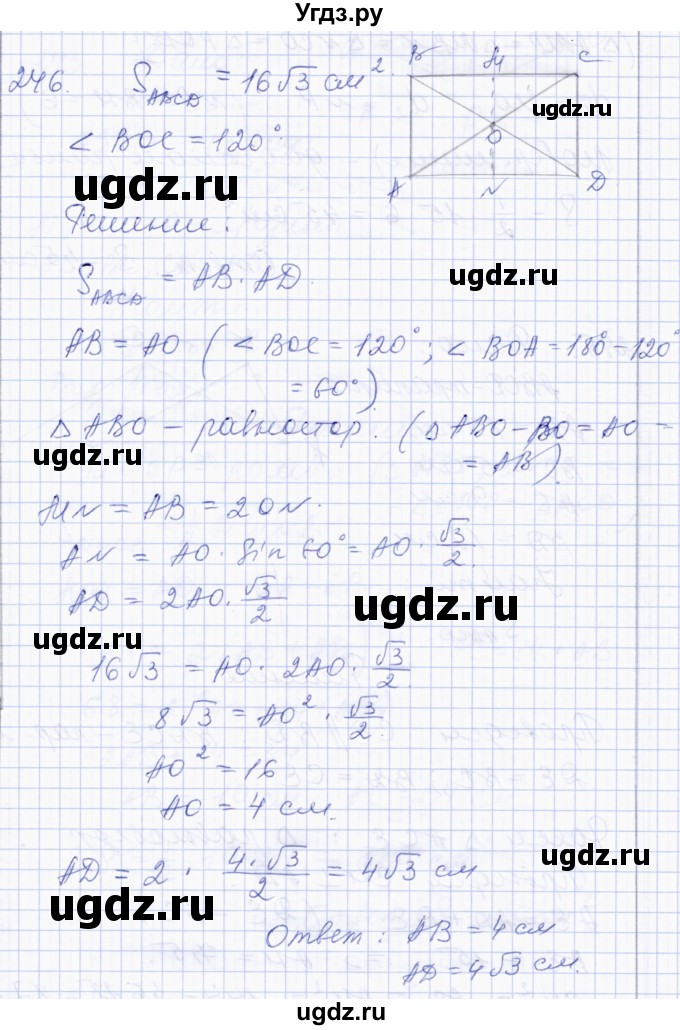 Угдз.ру
246. S ABCD = 16√3 см².
B M C
ugdz.ru
< BOC = 120°.
O
ugdz.ru
A N D
Решение:
ugdz.ru
S ABCD = AB · AD.
AB = AO (< BOC = 120°; < BOA = 180 – 120°
= 60°).
Δ ABO – равностор. (Δ ABO – BO = AO =
ugdz.ru
= AB).
MN = AB = 2ON.
ugdz.ru
AN = AO · sin 60° = AO · √3/2.
AD = 2AO · √3/2
ugdz.ru
ugdz.ru
16√3 = AO · 2AO · √3/2.
8√3 = AO² · √3/2.
AO² = 16
AO = 4 см.
ugdz.ru
AD = 2 · 4·√3/2 = 4√3 см
ugdz.ru
Ответ: AB = 4 см
AD = 4√3 см.
ugdz.ru